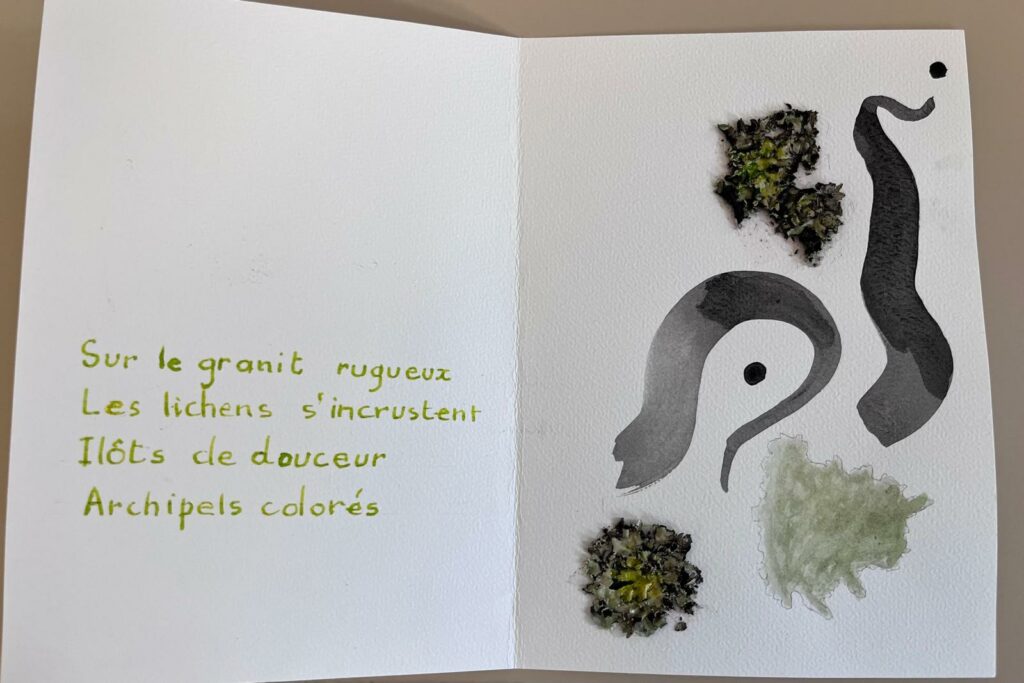 Sur le granit rugueux
Les lichens s'incrustent
Ilôts de douceur
Archipels colorés